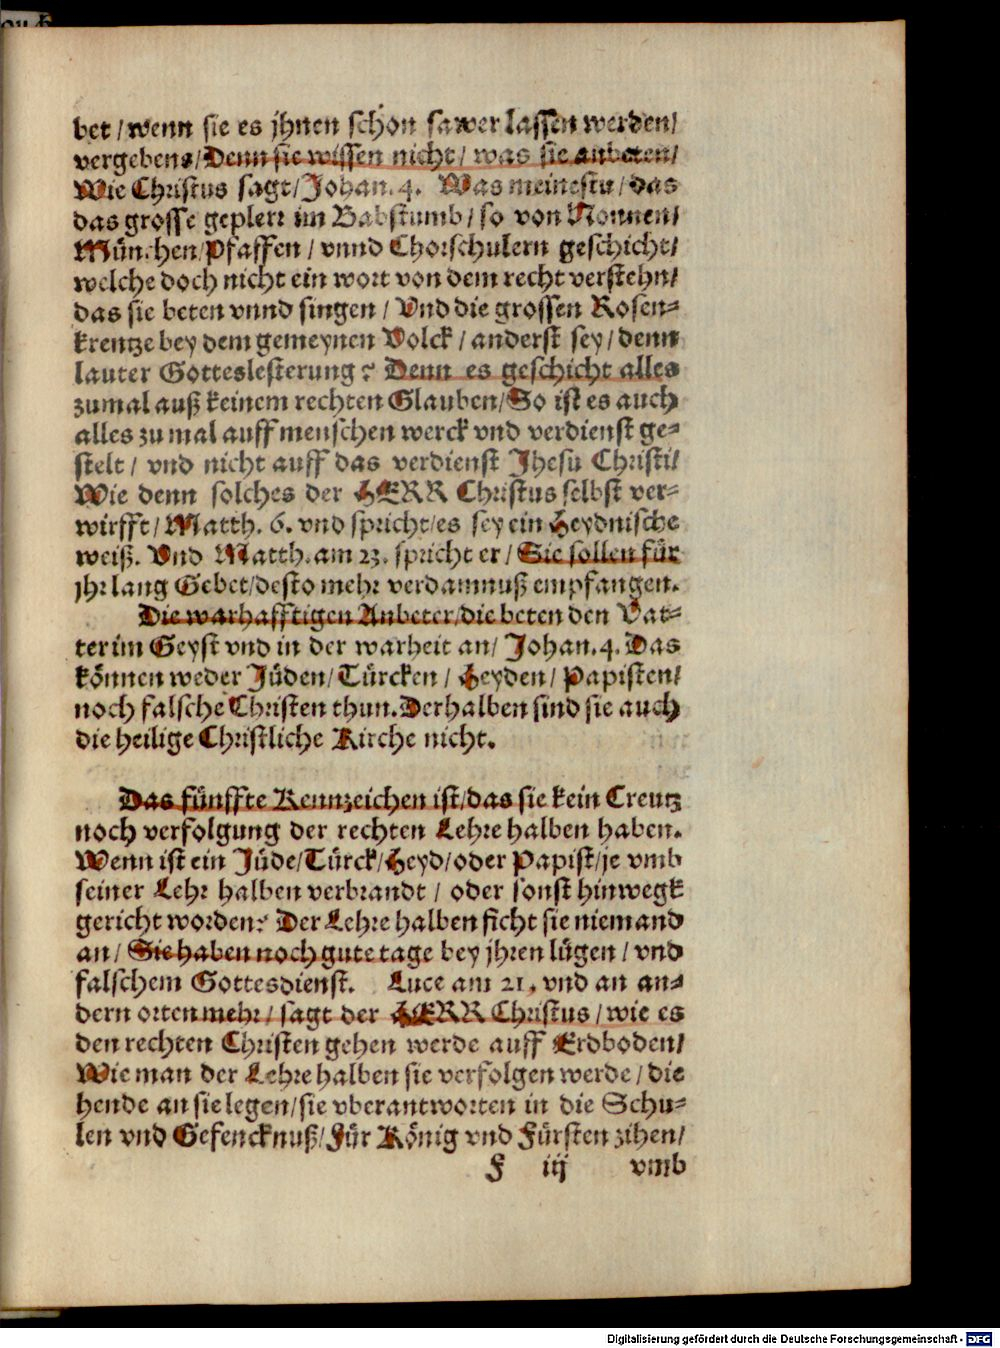 bet / wenn sie es jhnen schon sawer lassen werden /
vergebens / Denn sie wissen nicht / was sie anbeten /
Wie Christus sagt / Johan. 4. Was meinestu / das
das grosse geplerr im Babstumb / so von Nonnen /
München / Pfaffen / vnnd Chorschulern geschicht /
welche doch nicht ein wort von dem recht verstehn /
das sie beten vnnd singen / Vnd die grossen Rosen-
krentze bey dem gemeynen Volck / anderst sey / denn
lauter Gotteslesterung? Denn es geschicht alles
zumal auß keinem rechten Glauben / So ist es auch
alles zu mal auff menschen werck vnd verdienst ge-
stelt / vnd nicht auff das verdienst Jhesu Christi /
Wie denn solches der HERR Christus selbst ver-
wirfft / Matth. 6. vnd spricht / es sey ein Heydnische
weiß. Vnd Matth. am 23. spricht er / Sie sollen für
jhr lang Gebet / desto mehr verdamnuß empfangen.
Die warhafftigen Anbeter / die beten den Vat-
ter im Geyst vnd in der warheit an / Johan. 4. Das
können weder Jüden / Türcken / Heyden / Papisten /
noch falsche Christen thun. Derhalben sind sie auch
die heilige Christliche Kirche nicht.
Das fünffte Kennzeichen ist / das sie kein Creutz
noch verfolgung der rechten Lehre halben haben.
Wenn ist ein Jüde / Türck / Heyd / oder Papist / je vmb
seiner Lehr halben verbrandt / oder sonst hinwegk
gericht worden? Der Lehre halben ficht sie niemand
an / Sie haben noch gute tage bey jhren lügen / vnd
falschem Gottesdienst. Luce am 21. vnd an an-
dern orten mehr / sagt der HERR Christus / wie es
den rechten Christen gehen werde auff Erdboden /
Wie man der Lehre halben sie verfolgen werde / die
hende an sie legen / sie vberantworten in die Schu-
len vnd Gefencknuß / Für König vnd Fürsten zihen /
F iij vmb
Digitalisierung gefördert durch die Deutsche Forschungsgemeinschaft - DFG